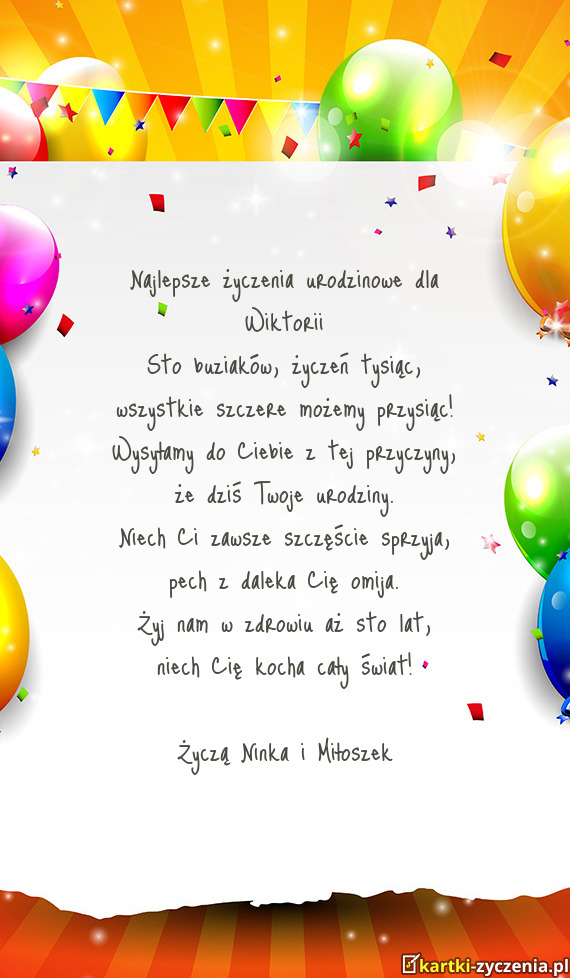 Najlepsze życzenia urodzinowe dla
Wiktorii
Sto buziaków, życzeń tysiąc,
wszystkie szczere możemy przysiąc!
Wysyłamy do Ciebie z tej przyczyny,
że dziś Twoje urodziny.
Niech Ci zawsze szczęście sprzyja,
pech z daleka Cię omija.
Żyj nam w zdrowiu aż sto lat,
niech Cię kocha cały świat!
Życzą Ninka i Miłoszek
kartki-zyczenia.pl